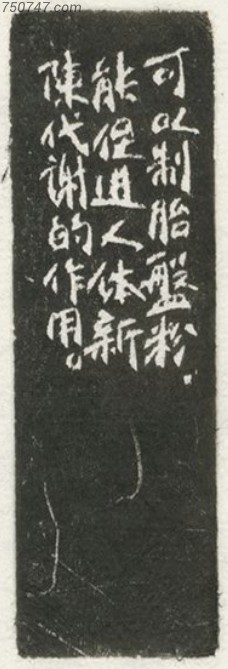 750747.com
可以制胎盤粉.
能促進人体新
陳代谢的作用。